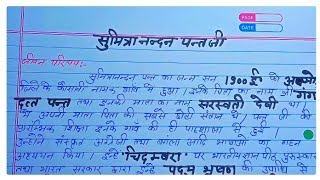 PAGE
DATE
सुमित्रानन्दन पन्त जी
जीवन परिचय:-
सुमित्रानन्दन पन्त का जन्म सन् 1900 ई० को अल्मो
जिले के कौसानी नामक ग्राम में हुआ। इनके पिता का नाम श्री गंगा
दत्त पन्त तथा इनकी माता का नाम सरस्वती देवी था।
ये अपनी माता पिता की सबसे छोटी संतान थे। पन्त जी की
प्रारम्भिक शिक्षा इनके गाँव की ही पाठशाला में हुई।
उन्होंने संस्कृत अंग्रेजी तथा बांग्ला आदि भाषाओं का गहन
अध्ययन किया। इन्हें "चिदम्बरा" पर भारतीय ज्ञानपीठ पुरस्कार
तथा भारत सरकार द्वारा इन्हें पद्म भूषण की उपाधि से